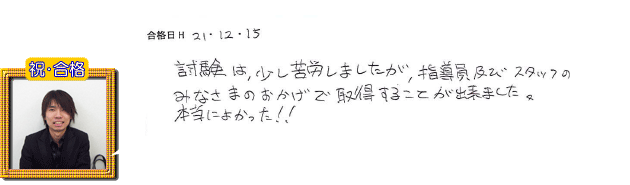 合格日 H 21・12・15
祝・合格
試験は,少し苦労しましたが,指導員及びスタッフの
みなさまのおかげで取得することが出来ました。
本当によかった!!